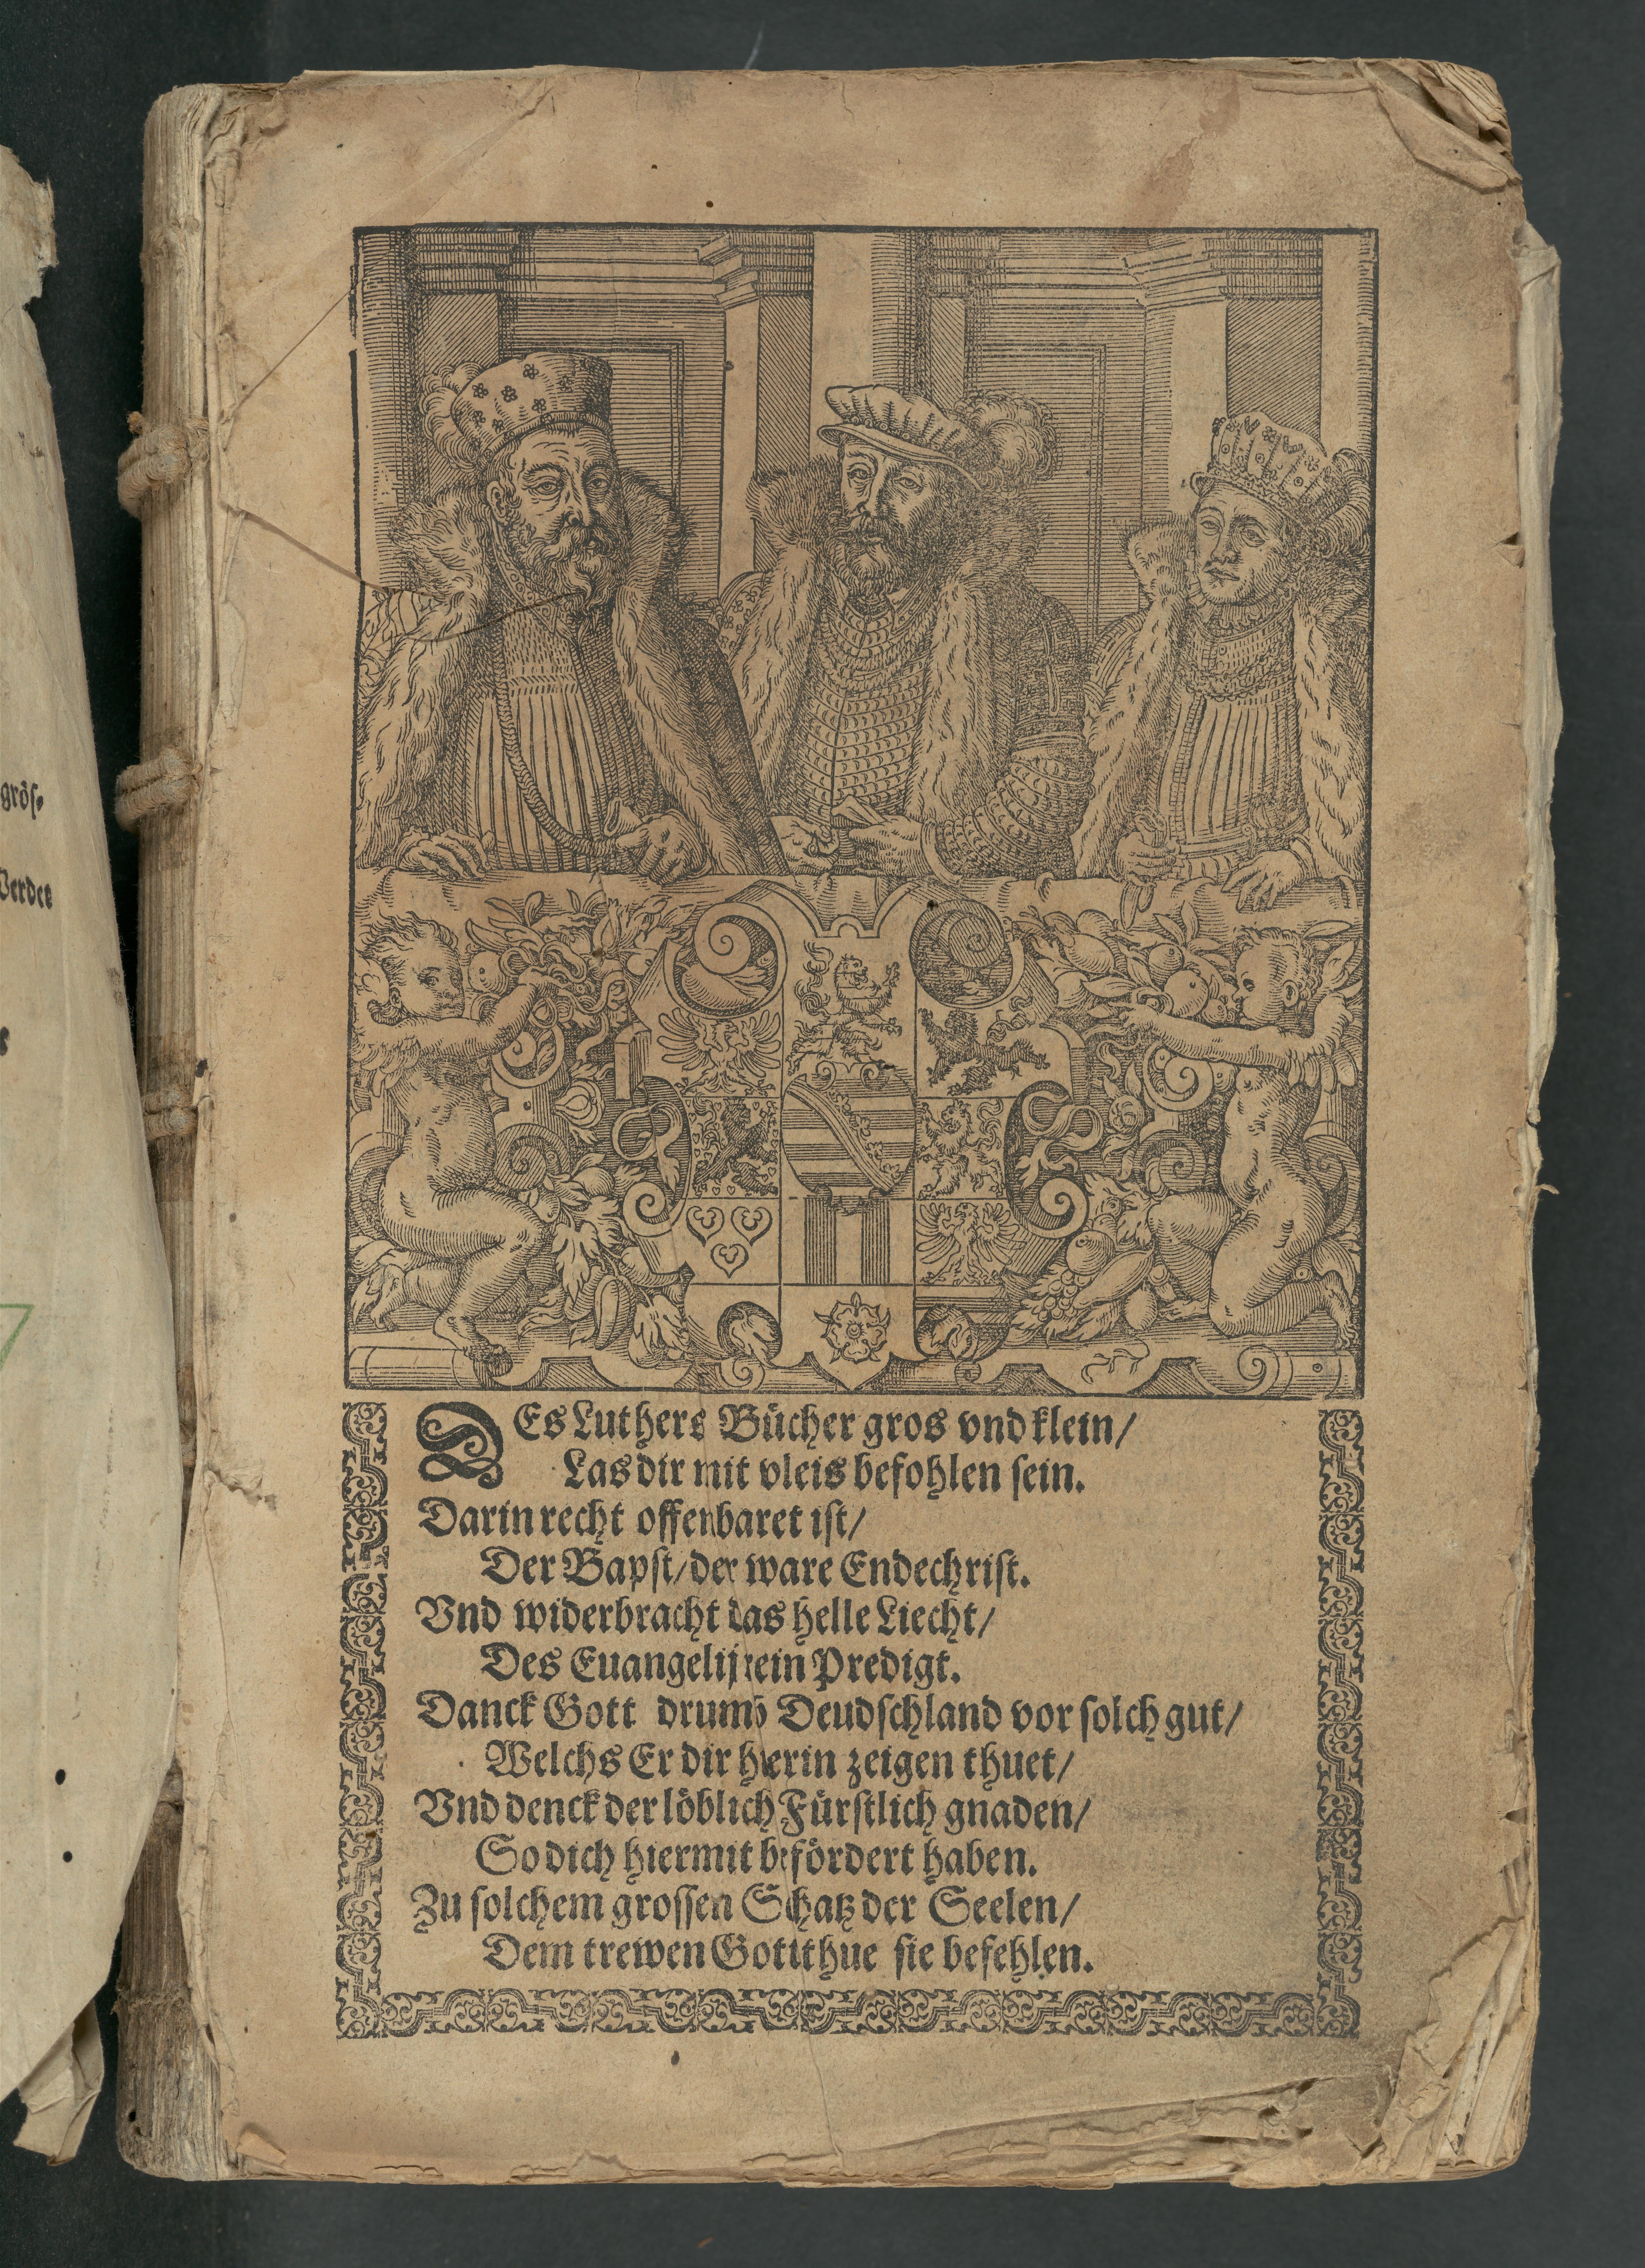 grös⸗
Werdet
DEs Luthers Bücher gros vnd klein/
Las dir mit vleis befohlen sein.
Darin recht offenbaret ist/
Der Bapst/ der ware Endechrist.
Vnd widerbracht das helle Liecht/
Des Euangelij rein Predigt.
Danck Gott drumb Deudschland vor solch gut/
Welchs Er dir hierin zeigen thuet/
Vnd denck der löblich Fürstlich gnaden/
So dich hiermit befördert haben.
Zu solchem grossen Schatz der Seelen/
Dem trewen Gott thue sie befehlen.